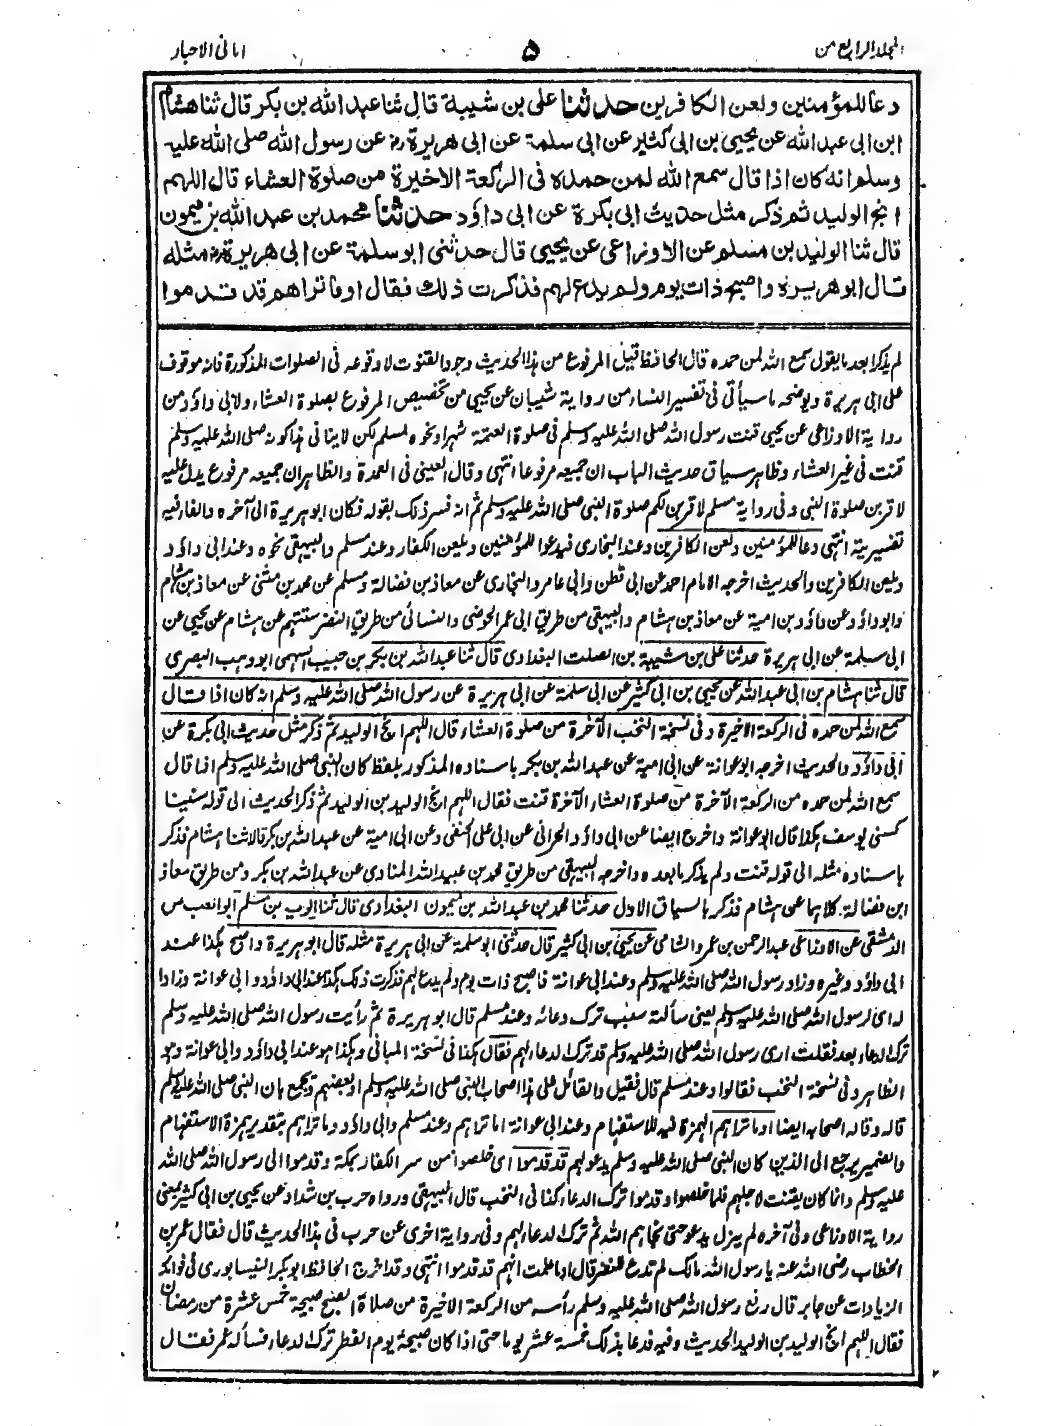 المجلد الرابع من
٥
امانی الاحبار
دعا للمؤمنین ولعن الکافرین حدثنا علی بن شیبة قال ثنا عبد الله بن بکر قال ثنا هشام
ابن ابی عبد الله عن یحیی بن ابی کثیر عن ابی سلمة عن ابی هریرة رض عن رسول الله صلی الله علیه
وسلم انه کان اذا قال سمع الله لمن حمده فی الرکعة الاخیرة من صلوة العشاء قال اللهم
انج الولید ثم ذکر مثل حدیث ابی بکرة عن ابی داؤد حدثنا محمد بن عبد الله بن میمون
قال ثنا الولید بن مسلم عن الاوزاعی عن یحیی قال حدثنی ابو سلمة عن ابی هریرة رض مثله
قال ابو هریرة واصبح ذات یوم ولم یدع لهم فذکرت ذلک فقال اوما تراهم قد قدموا
لم یذکر ابعد ما یقول سمع الله لمن حمده قال الحافظ قیل المرفوع من هذا الحدیث وجود القنوت لا وقوعه فی الصلوات المذکورة فانه موقوف
علی ابی هریرة ویوضحه ما سیأتی فی تفسیر النساء من روایة شیبان عن یحیی من تخصیص المرفوع بصلوة العشاء ولابی داؤد من
روایة الاوزاعی عن یحیی قنت رسول الله صلی الله علیه وسلم فی صلوة العتمة شهرا ونحوه لمسلم لکن لا ینافی هذا کونه صلی الله علیه وسلم
قنت فی غیر العشاء وظاهر سیاق حدیث الباب ان جمیعه مرفوعا انتهی وقال العینی فی العمدة والظاهر ان جمیعه مرفوع یدل علیه
لاقربن صلوة النبی وفی روایة مسلم لاقربن لکم صلوة النبی صلی الله علیه وسلم ثم انه فسر ذلک بقوله فکان ابو هریرة الی آخره والفاء فیه
تفسیریة انتهی دعا للمؤمنین ولعن الکافرین وعند البخاری فیدعوا للمؤمنین ویلعن الکفار وعند مسلم والبیهقی نحوه وعند ابی داؤد
ویلعن الکافرین والحدیث اخرجه الامام احمد عن ابی قطن وابی عامر والبخاری عن معاذ بن فضالة ومسلم عن محمد بن مثنی عن معاذ بن هشام
وابو داؤد عن داؤد بن امیة عن معاذ بن هشام والبیهقی من طریق ابی عمر الحوضی والنسائی من طریق النضر ستتهم عن هشام عن یحیی عن
ابی سلمة عن ابی هریرة حدثنا علی بن شیبة بن الصلت البغدادی قال ثنا عبد الله بن بکر بن حبیب السهمی ابو وهب البصری
قال ثنا هشام بن ابی عبد الله عن یحیی بن ابی کثیر عن ابی سلمة عن ابی هریرة عن رسول الله صلی الله علیه وسلم انه کان اذا قال
سمع الله لمن حمده فی الرکعة الاخیرة وفی نسخة النخب الآخرة من صلوة العشاء قال اللهم انج الولید ثم ذکر مثل حدیث ابی بکرة عن
ابی داؤد والحدیث اخرجه ابو عوانة عن ابی امیة عن عبد الله بن بکر باسناده المذکور بلفظ کان النبی صلی الله علیه وسلم اذا قال
سمع الله لمن حمده من الرکعة الآخرة من صلوة العشاء الآخرة قنت فقال اللهم انج الولید بن الولید ثم ذکر الحدیث الی قوله سنینا
کسنی یوسف هکذا قال ابو عوانة واخرج ایضا عن ابی داؤد الحرانی عن ابی علی الحنفی وعن ابی امیة عن عبد الله بن بکر قالا ثنا هشام فذکر
باسناده مثله الی قوله قنت ولم یذکر ما بعده واخرجه البیهقی من طریق محمد بن عبید الله المنادی عن عبد الله بن بکر ومن طریق معاذ
ابن فضالة کلاهما عن هشام فذکر بالسیاق الاول حدثنا محمد بن عبد الله بن میمون البغدادی قال ثنا الولید بن مسلم ابو العباس
الدمشقی عن الاوزاعی عبد الرحمن بن عمرو الشامی عن یحیی بن ابی کثیر قال حدثنی ابو سلمة عن ابی هریرة مثله قال ابو هریرة واصبح هکذا عند
ابی داؤد وغیره وزاد رسول الله صلی الله علیه وسلم وعند ابی عوانة فاصبح ذات یوم ولم یدع لهم فذکرت ذلک هکذا عند ابی داؤد وابی عوانة وزادا
له ای لرسول الله صلی الله علیه وسلم یعنی سألته سبب ترک دعائه وعند مسلم قال ابو هریرة ثم رأیت رسول الله صلی الله علیه وسلم
ترک الدعاء بعد فقلت اری رسول الله صلی الله علیه وسلم قد ترک الدعاء لهم فقال کذا فی نسخة المبانی وهکذا هو عند ابی داؤد وابی عوانة وهو
الظاهر وفی نسخة النخب فقالوا وعند مسلم قال فقیل والقائل علی هذا اصحاب النبی صلی الله علیه وسلم او بعضهم ویجمع بان النبی صلی الله علیه وسلم
قاله وقاله اصحابه ایضا اوما تراهم الهمزة فیه للاستفهام وعند ابی عوانة اما تراهم وعند مسلم وابی داؤد وما تراهم بتقدیر همزة الاستفهام
والضمیر یرجع الی الذین کان النبی صلی الله علیه وسلم یدعو لهم قد قدموا ای خلصوا من سر الکفار بمکة وقدموا الی رسول الله صلی الله
علیه وسلم وانما کان یقنت لاجلهم فلما خلصوا وقدموا ترک الدعاء کذا فی النخب قال البیهقی ورواه حرب بن شداد عن یحیی بن ابی کثیر بمعنی
روایة الاوزاعی وفی آخره لم یزل یدعو حتی نجاهم الله ثم ترک الدعاء لهم وفی روایة اخری عن حرب فی هذا الحدیث قال فقال عمر بن
الخطاب رضی الله عنه یا رسول الله مالک لم تدع للنفر قال اما علمت انهم قد قدموا انتهی وقد اخرج الحافظ ابو بکر النیسابوری فی فوائد
الزیادات عن جابر قال رفع رسول الله صلی الله علیه وسلم رأسه من الرکعة الاخیرة من صلاة الصبح صبیحة خمس عشرة من رمضان
فقال اللهم انج الولید بن الولید الحدیث وفیه فدعا بذلک خمسة عشر یوما حتی اذا کان صبیحة یوم الفطر ترک الدعاء فسأله عمر فقال